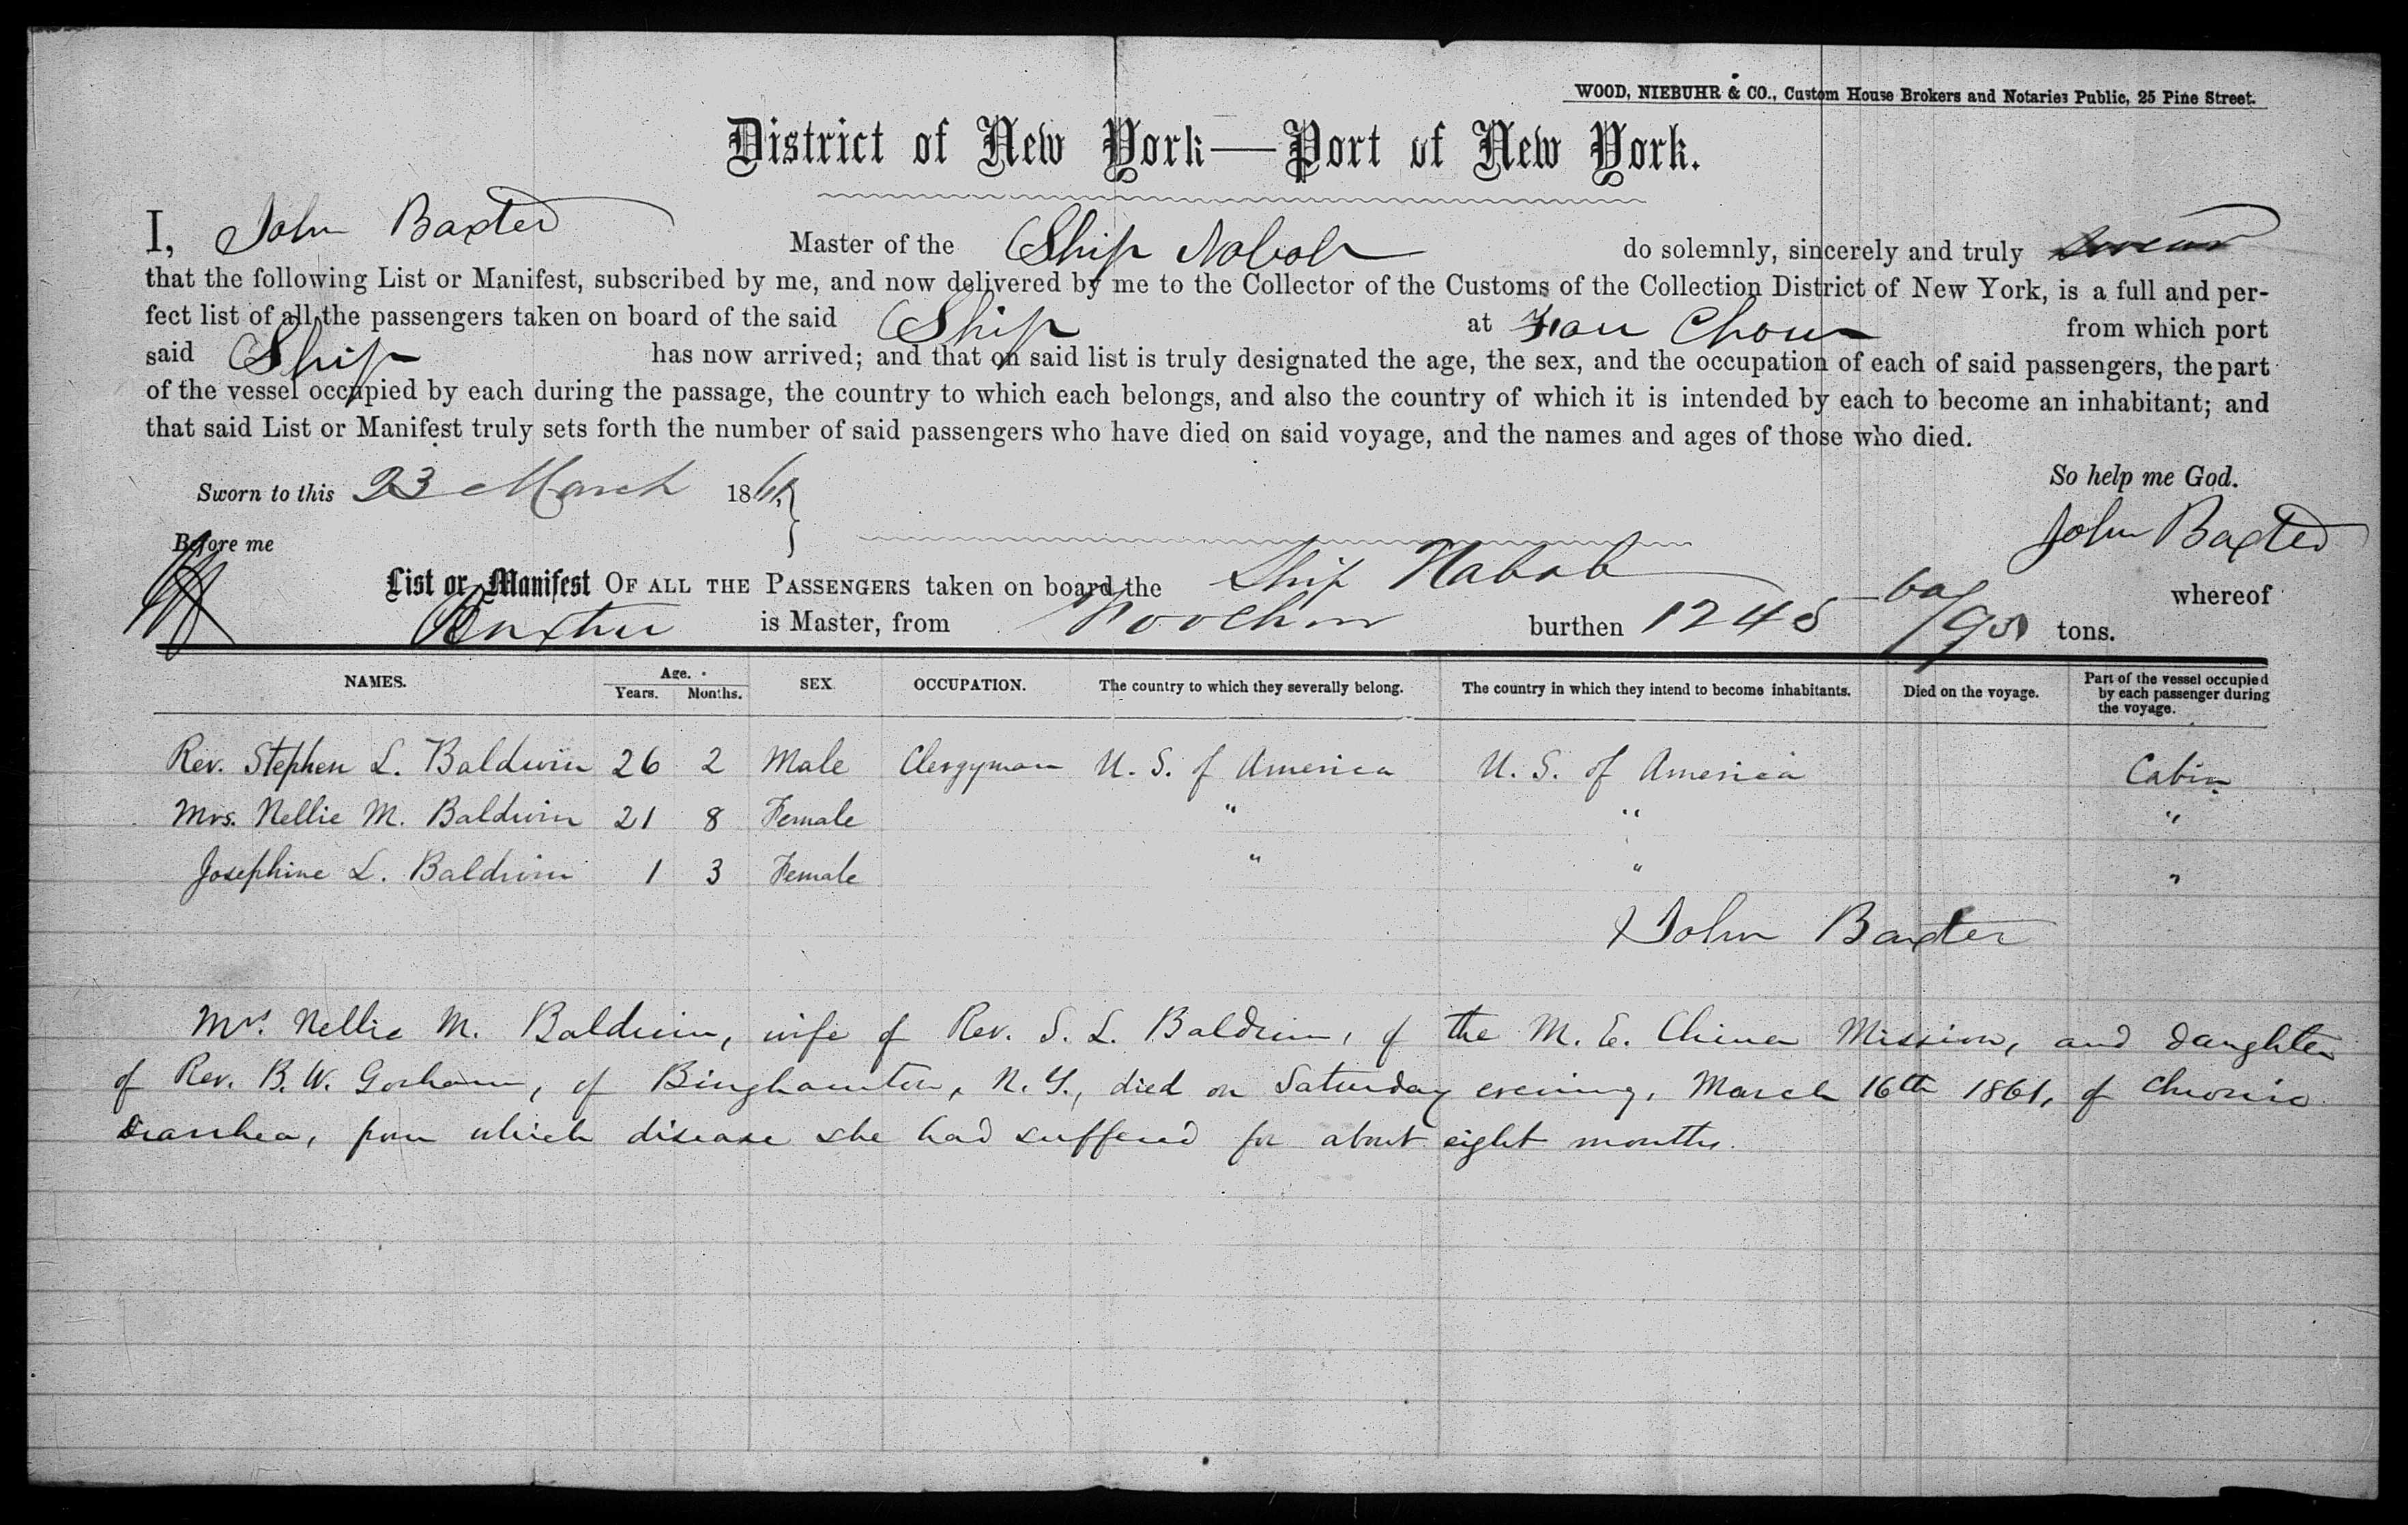 WOOD, NIEBUHR & CO., Custom House Brokers and Notaries Public, 25 Pine Street.
District of New York—Port of New York.
I, John Baxter Master of the Ship Nabob do solemnly, sincerely and truly swear
that the following List or Manifest, subscribed by me, and now delivered by me to the Collector of the Customs of the Collection District of New York, is a full and per-
fect list of all the passengers taken on board of the said Ship at Fou Chow from which port
said Ship has now arrived; and that on said list is truly designated the age, the sex, and the occupation of each of said passengers, the part
of the vessel occupied by each during the passage, the country to which each belongs, and also the country of which it is intended by each to become an inhabitant; and
that said List or Manifest truly sets forth the number of said passengers who have died on said voyage, and the names and ages of those who died.
So help me God.
Sworn to this 23 March 1861
John Baxter
Before me
List or Manifest OF ALL THE PASSENGERS taken on board the Ship Nabob whereof
Baxter is Master, from Foochow burthen 1245 /95 tons.
NAMES. Age. Years. Months. SEX. OCCUPATION. The country to which they severally belong. The country in which they intend to become inhabitants. Died on the voyage. Part of the vessel occupied by each passenger during the voyage.
Rev. Stephen L. Baldwin 26 2 Male Clergyman U. S. of America U. S. of America Cabin
Mrs. Nellie M. Baldwin 21 8 Female " " "
Josephine L. Baldwin 1 3 Female " " "
John Baxter
Mrs. Nellie M. Baldwin, wife of Rev. S. L. Baldwin, of the M. E. China Mission, and daughter
of Rev. B. W. Gorham, of Binghamton, N. Y., died on Saturday evening, March 16th 1861, of Chronic
Diarrhea, from which disease she had suffered for about eight months.